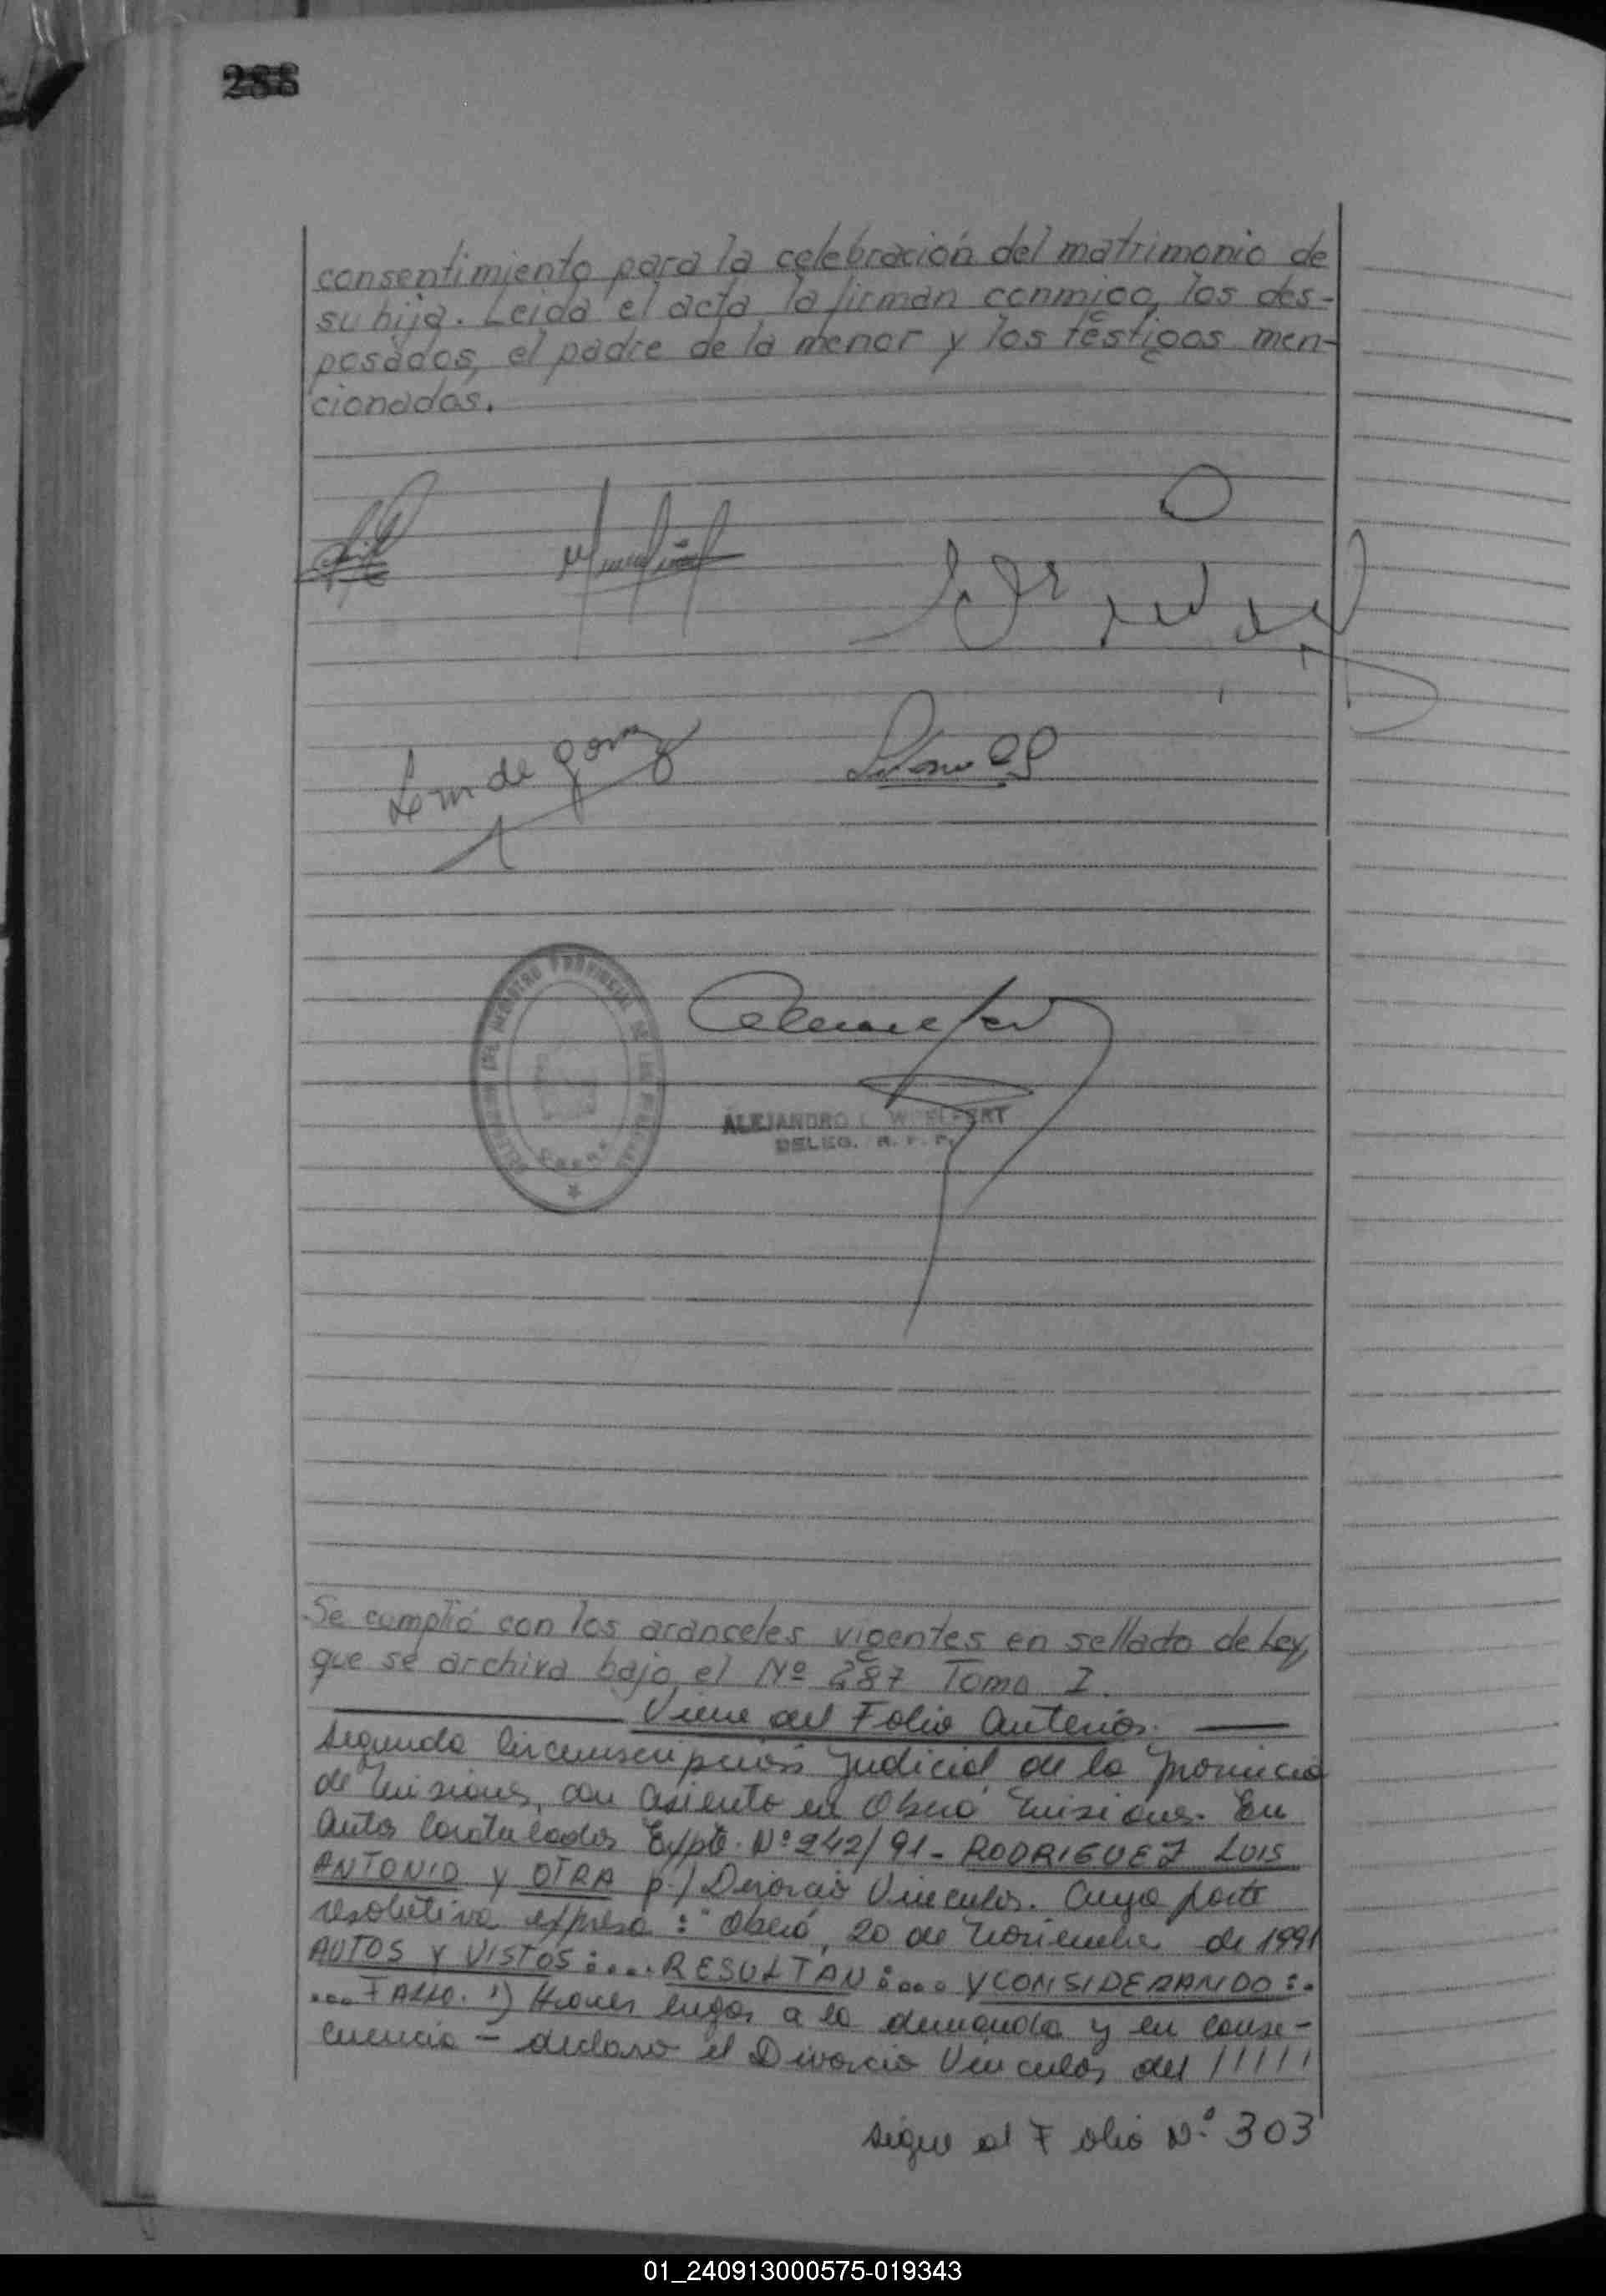 288
consentimiento para la celebración del matrimonio de
su hija. Leida el acta la firman conmigo, los des-
posados, el padre de la menor y los testigos men-
cionados.
DELEGACION DEL REGISTRO PROVINCIAL DE LAS PERSONAS
OBERA
ALEJANDRO L. WUELFERT
DELEG. R. P. P.
Se cumplió con los aranceles vigentes en sellado de Ley,
que se archiva bajo el Nº 287 Tomo I.
Viene del Folio Anterior.
Segunda Circunscripción Judicial de la Provincia
de Misiones, con asiento en Oberá Misiones. En
Autos Caratulados Expte. Nº 242/91 - RODRIGUEZ LUIS
ANTONIO y OTRA p./ Divorcio Vincular. Cuya parte
resolutiva expresa: "Oberá, 20 de Noviembre de 1991
AUTOS Y VISTOS:.... RESULTAN:.... Y CONSIDERANDO:.
...FALLO. 1) Hacer lugar a la demanda y en conse-
cuencia - declaro el Divorcio Vincular del / / / / /
Sigue al Folio Nº 303
01_240913000575-019343